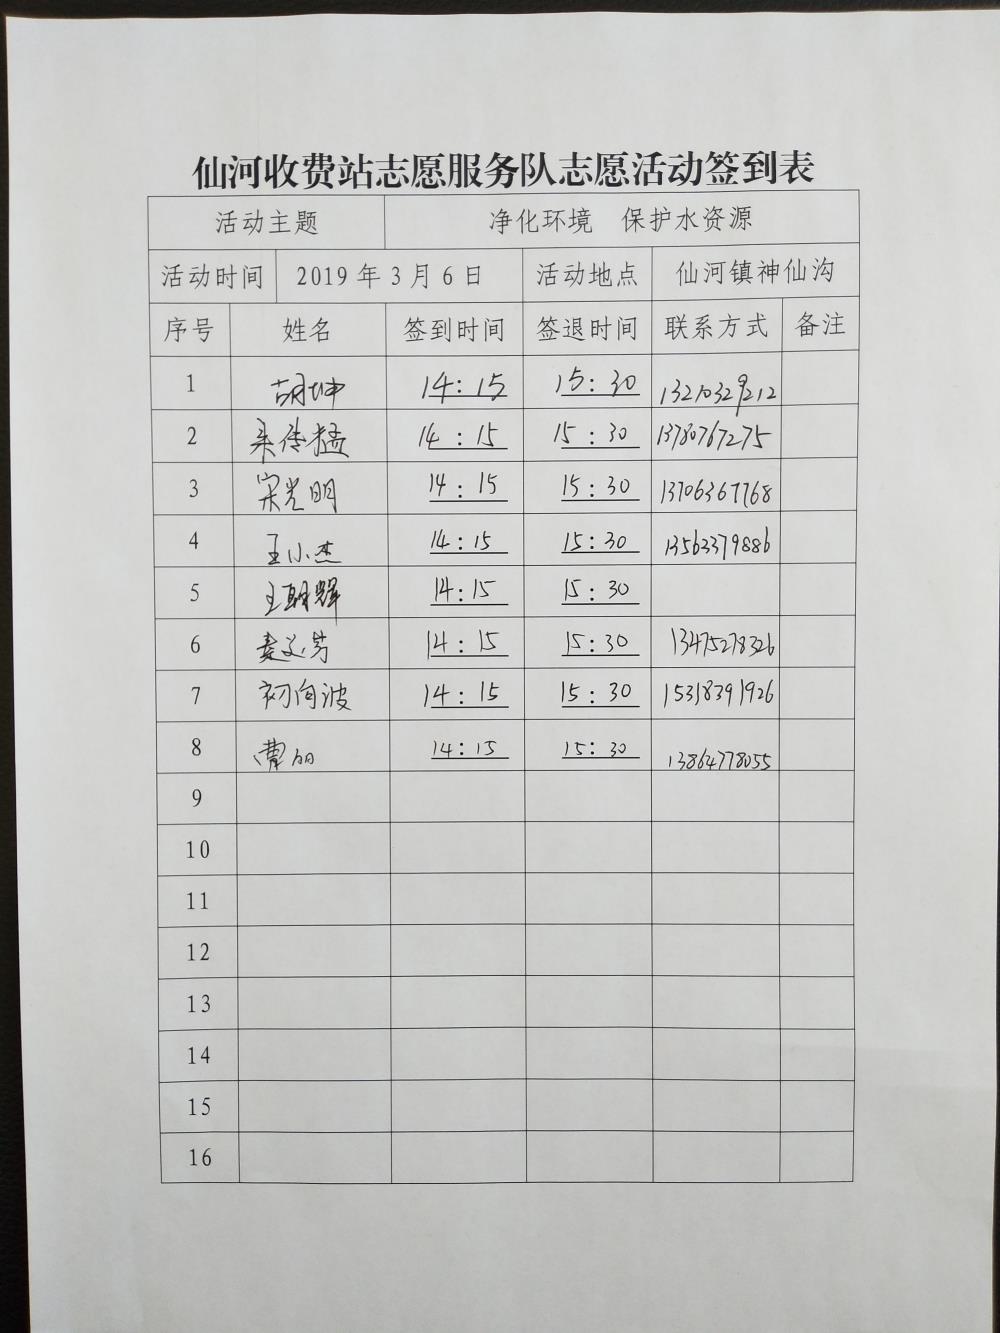 仙河收费站志愿服务队志愿活动签到表
活动主题 净化环境 保护水资源
活动时间 2019 年 3 月 6 日 活动地点 仙河镇神仙沟
序号 姓名 签到时间 签退时间 联系方式 备注
1 胡坤 14:15 15:30 13210329212
2 传猛 14:15 15:30 13780767275
3 宋光明 14:15 15:30 13706367768
4 王小杰 14:15 15:30 13563379886
5 王 14:15 15:30
6 14:15 15:30 13475278326
7 初向波 14:15 15:30 15318391926
8 曹 14:15 15:30 13864778055
9
10
11
12
13
14
15
16